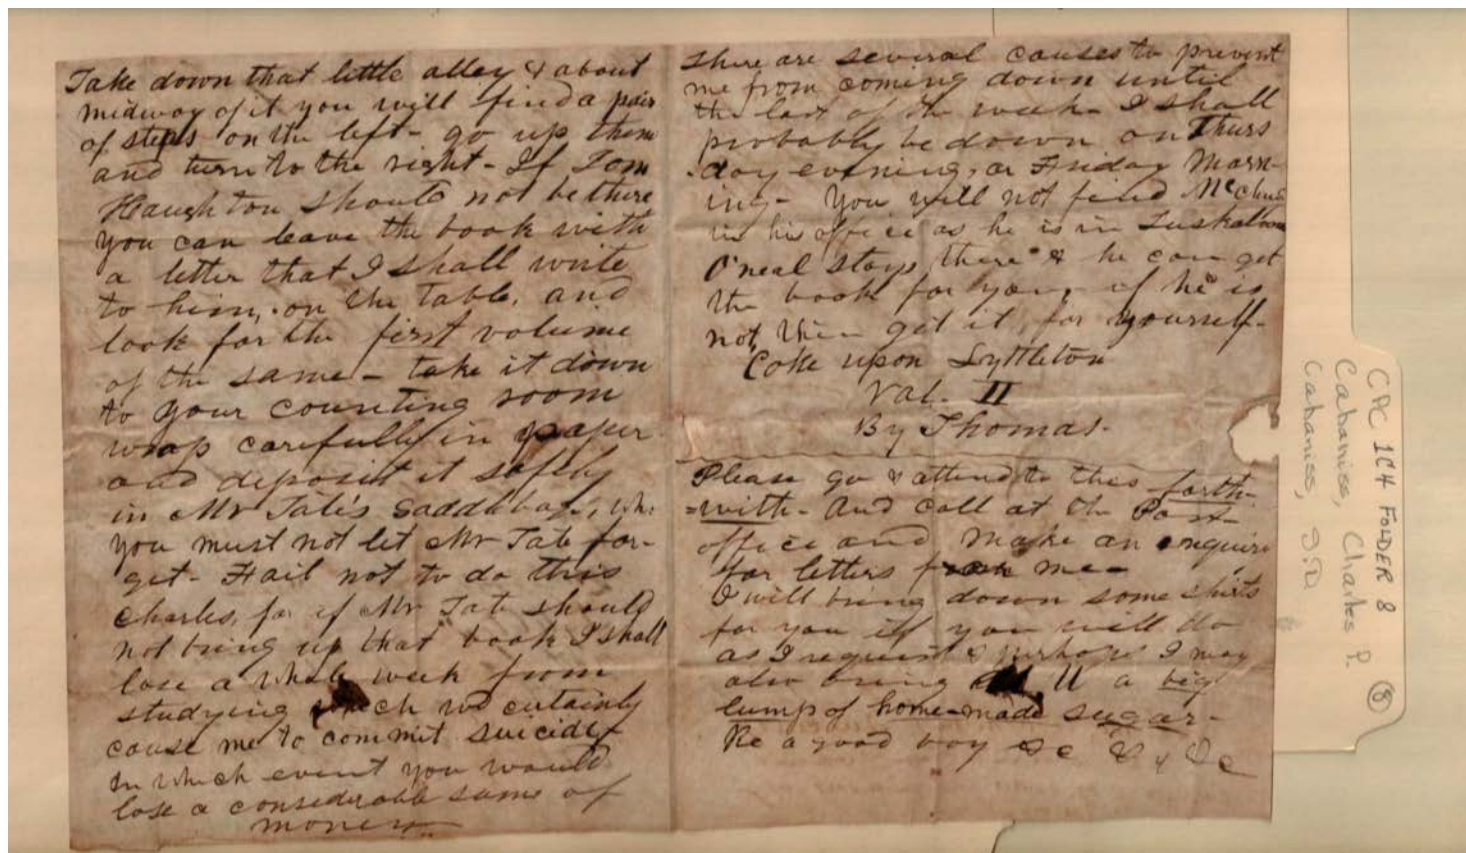 Take down that little alley & about
midway of it you will find a pair
of steps on the left - go up them
and turn to the right - If Tom
Haughton should not be there
you can leave the book with
a letter that I shall write
to him, on the table, and
look for the first volume
of the same - take it down
to your counting room
wrap carefully in paper
and deposit it safely
in Mr Tate's Saddlebags, wh:
you must not let Mr Tate for-
get - Fail not to do this
Charles, for if Mr Tate should
not bring up that book I shall
lose a whole week from
studying which wd certainly
cause me to commit suicide -
In which event you would
lose a considerable sume of
money -
There are several causes to prevent
me from coming down until
the last of the week - I shall
probably be down on Thurs
-day evening, or Friday Morn-
ing - You will not find McClung
in his office as he is in Tuskaloosa
O'neal stays there & he can get
the book for you, if he is
not, then get it for yourself -
Coke upon Lyttleton
Vol. II
By Thomas -
Please go & attend to this forth-
=with - And call at the Post-
office and make an enquire
for letters from me -
I will bring down some shirts
for you if you will do
as I request & perhaps I may
also bring U a big
lump of home-made sugar -
Be a good boy &c & y &c
CPC 1C4 FOLDER 8
Cabaniss, Charles P.
Cabaniss, S.D.
8